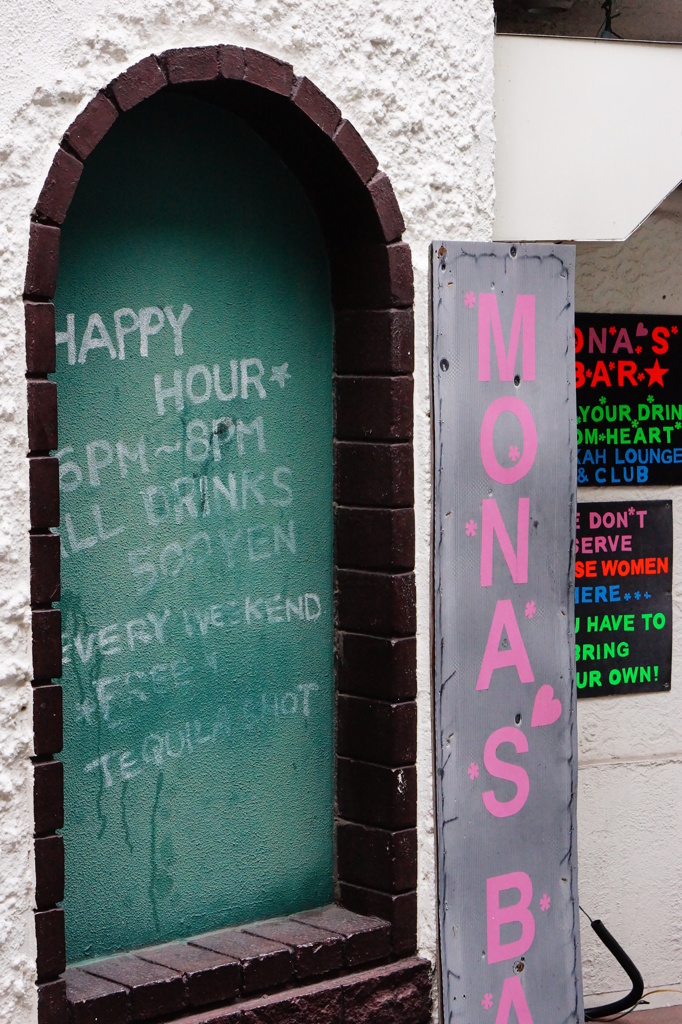 HAPPY
HOUR*
5PM~8PM
ALL DRINKS
500 YEN
EVERY WEEKEND
*FREE*
TEQUILA SHOT
MONA'S BA
ONA'S
BAR★
YOUR DRIN
OM HEART
KAH LOUNGE
& CLUB
E DON'T
SERVE
SE WOMEN
HERE...
U HAVE TO
BRING
UR OWN!